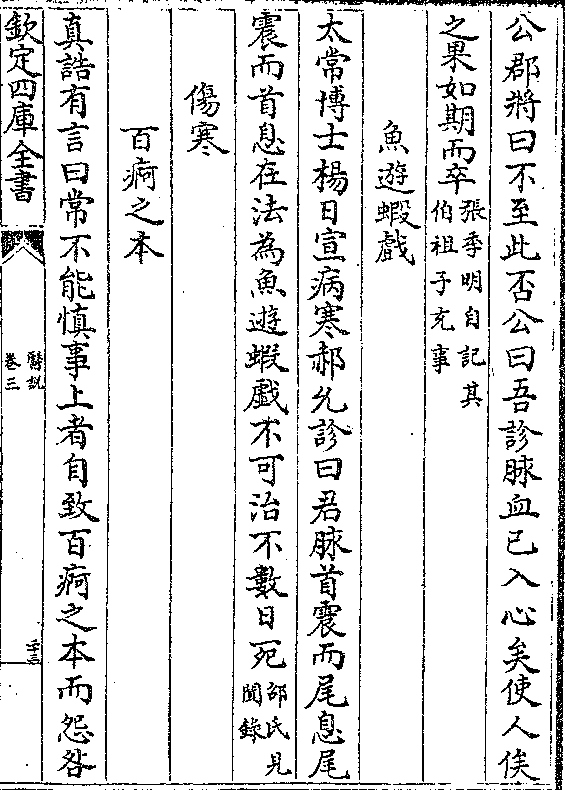 公郡將曰不至此否公曰吾診脉血已入心矣使人俟
之果如期而卒張季明自記其伯祖子充事
魚遊蝦戲
太常博士楊日宣病寒郝允診曰君脉首震而尾息尾
震而首息在法為魚遊蝦戲不可治不數日死邵氏見聞錄
傷寒
百痾之本
真誥有言曰常不能慎事上者自致百痾之本而怨咎
欽定四庫全書
醫說
卷三
十三